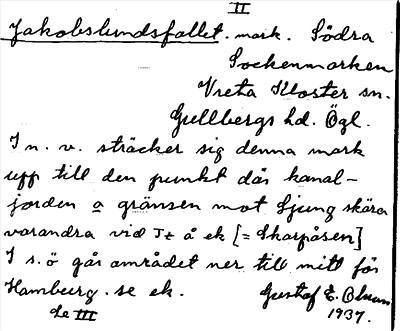 II
Jakobslundsfallet. mark. Södra
Sockenmarken
Vreta Kloster sn.
Gullbergs hd. Ögl.
I n. v. sträcker sig denna mark
upp till den punkt där kanal-
jorden o gränsen mot Ljung skära
varandra vid Jt å ek [= Skarpåsen]
I s.ö går området ner till mitt för
Hamburg. se ek.
Gustaf E. Olsson
1937.
Se III